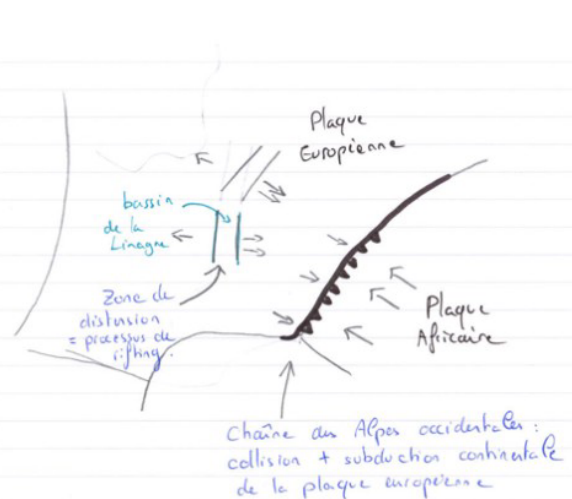 Plaque
Européenne
bassin
de la
Limagne
Zone de
distension
= processus de
rifting.
Plaque
Africaine
Chaîne des Alpes occidentales :
collision + subduction continentale
de la plaque européenne